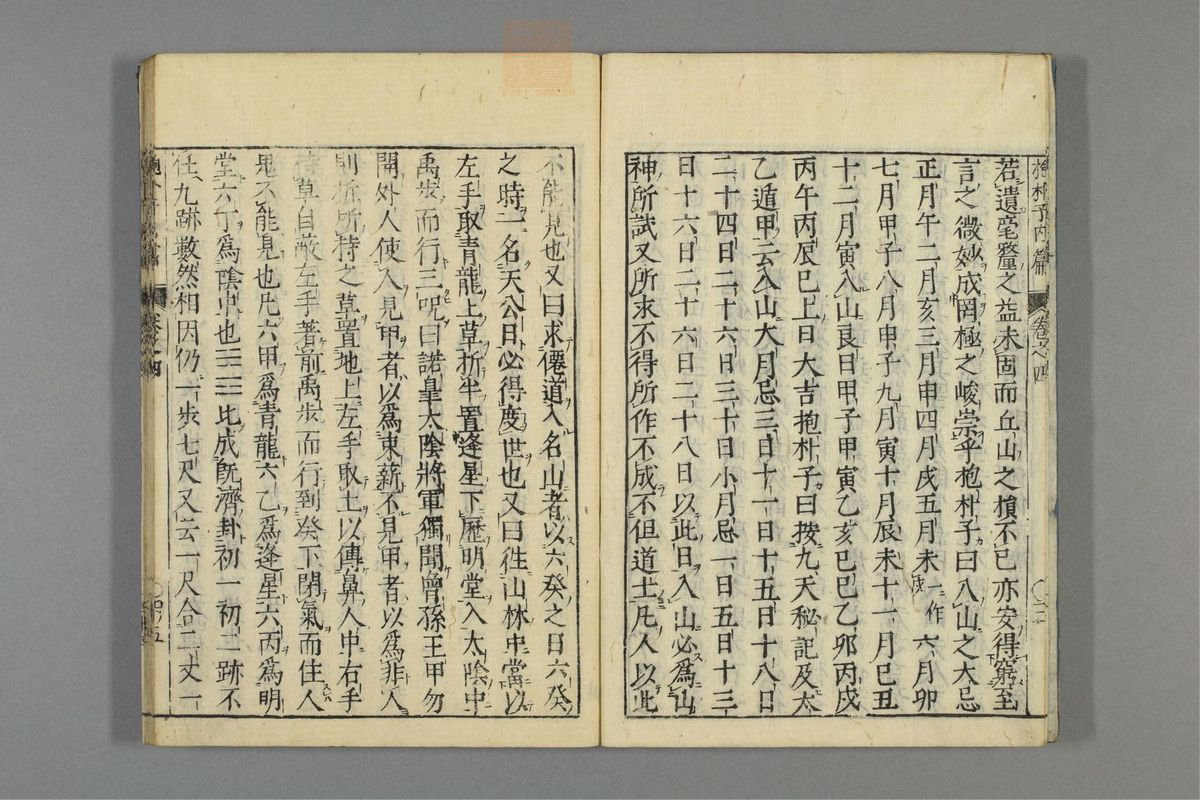 抱朴子内篇 卷之四
若遺毫釐之益未固而丘山之損不已亦安得窮至
言之微妙成罔極之峻崇乎抱朴子曰入山之大忌
正月午二月亥三月申四月戌五月未一作戌六月卯
七月甲子八月申子九月寅十月辰未十一月巳丑
十二月寅入山良日甲子甲寅乙亥巳巳乙卯丙戌
丙午丙辰巳上日大吉抱朴子曰按九天秘記及太
乙遁甲云入山大月忌三日十一日十五日十八日
二十四日二十六日三十日小月忌一日五日十三
日十六日二十六日二十八日以此日入山必為山
神所試又所求不得所作不成不但道士凡人以此
不能見也又曰求僊道入名山者以六癸之日六癸
之時一名天公日必得度世也又曰徃山林中當以
左手取青龍上草折半置逢星下歷明堂入太陰中
禹步而行三呪曰諾皇太陰將軍獨聞曾孫王甲勿
開外人使人見甲者以為束薪不見甲者以為非人
則折所持之草置地上左手取土以傅鼻人中右手
持草自蔽左手著前禹步而行到癸下閉氣而住人
鬼不能見也凡六甲為青龍六乙為逢星六丙為明
堂六丁為陰中也☵☲比成旣濟卦初一初二跡不
任九跡數然相因仍一步七尺又云一尺合二丈一
卷之四